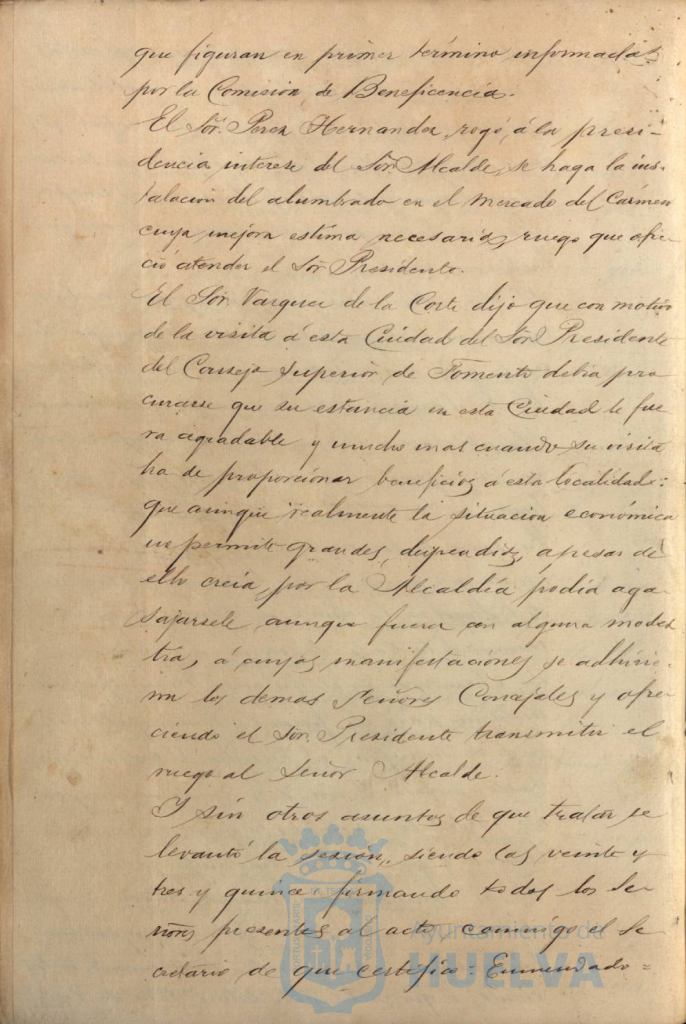 que figuran en primer término informadas
por la Comisión de Beneficencia.
El Sor. Perez Hernandez, rogó, á la presi-
dencia interese del Sor. Alcalde, se haga la ins-
talacion del alumbrado en el Mercado del Cármen
cuya mejora estima necesaria, ruego que ofre-
ció atender el Sor. Presidente.
El Sor. Vazquez de la Corte dijo que con motivo
de la visita á esta Ciudad del Sor. Presidente
del Consejo Superior de Fomento debia pro
curarse que su estancia en esta Ciudad le fue
ra agradable y mucho mas cuando su visita
ha de proporcionar beneficios á esta localidad:
que aunque realmente la situacion económica
no permite grandes dispendios, apesar de
ello creía, por la Alcaldía podia aga
sajarsele aunque fuera con alguna modes
tia, á cuyas manifestaciones se adhirie-
ron los demas Señores Concejales y ofre
ciendo el Sor. Presidente transmitir el
ruego al Señor Alcalde.
Y sin otros asuntos de que tratar se
levantó la sesión, siendo las veinte y
tres y quince firmando todos los Se
ñores presentes al acto, conmigo el Se
cretario de que certifico = Enmendado =
Ayuntamiento de
HUELVA